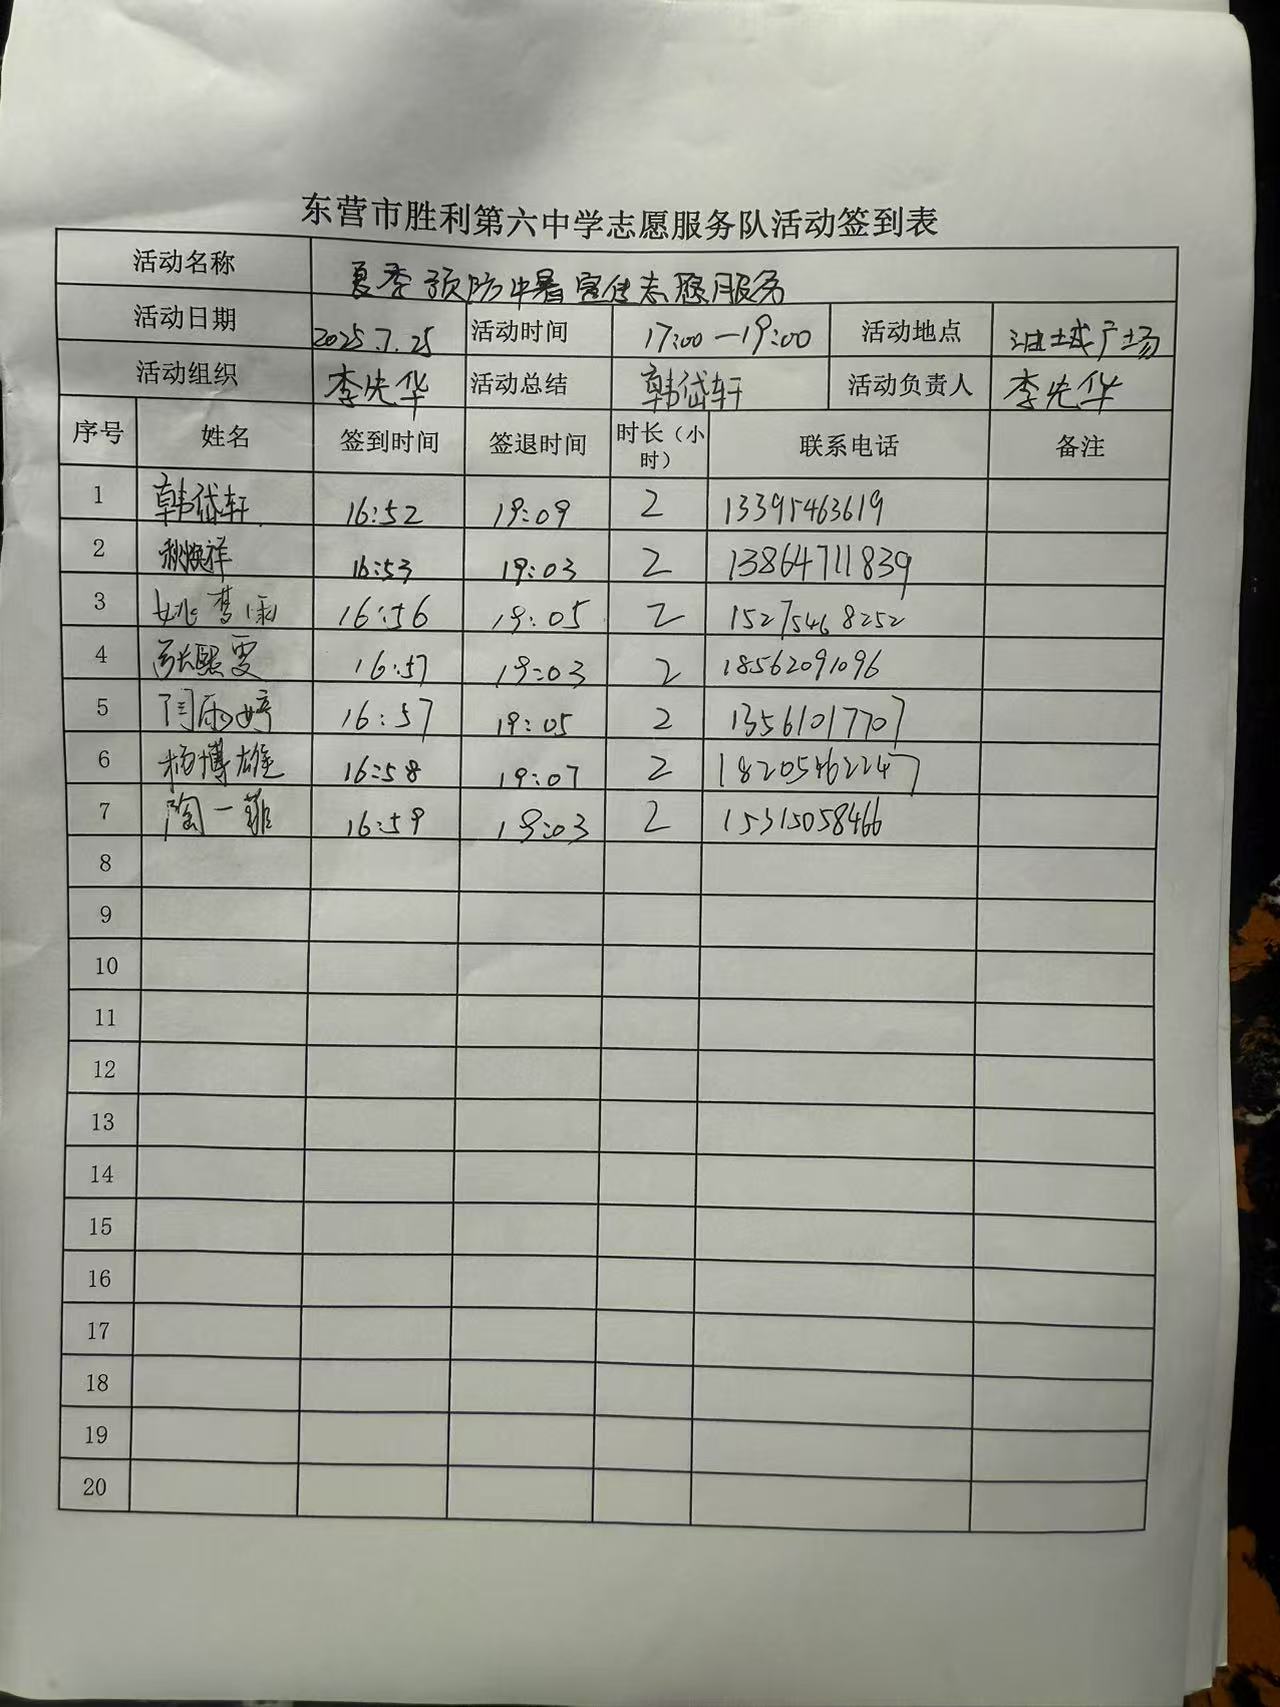 东营市胜利第六中学志愿服务队活动签到表
活动名称 夏季预防中暑宣传志愿服务
活动日期 2025.7.25 活动时间 17:00—19:00 活动地点 油城广场
活动组织 李先华 活动总结 韩岱轩 活动负责人 李先华
序号 姓名 签到时间 签退时间 时长（小时） 联系电话 备注
1 韩岱轩 16:52 19:09 2 13395463619
2 16:53 19:03 2 13864711839
3 姚梦涵 16:56 19:05 2 15275468252
4 张熙雯 16:57 19:03 2 18562091096
5 闫雨婷 16:57 19:05 2 13561017707
6 杨博雄 16:58 19:07 2 18205462247
7 陶一菲 16:59 19:03 2 15315058466
8
9
10
11
12
13
14
15
16
17
18
19
20